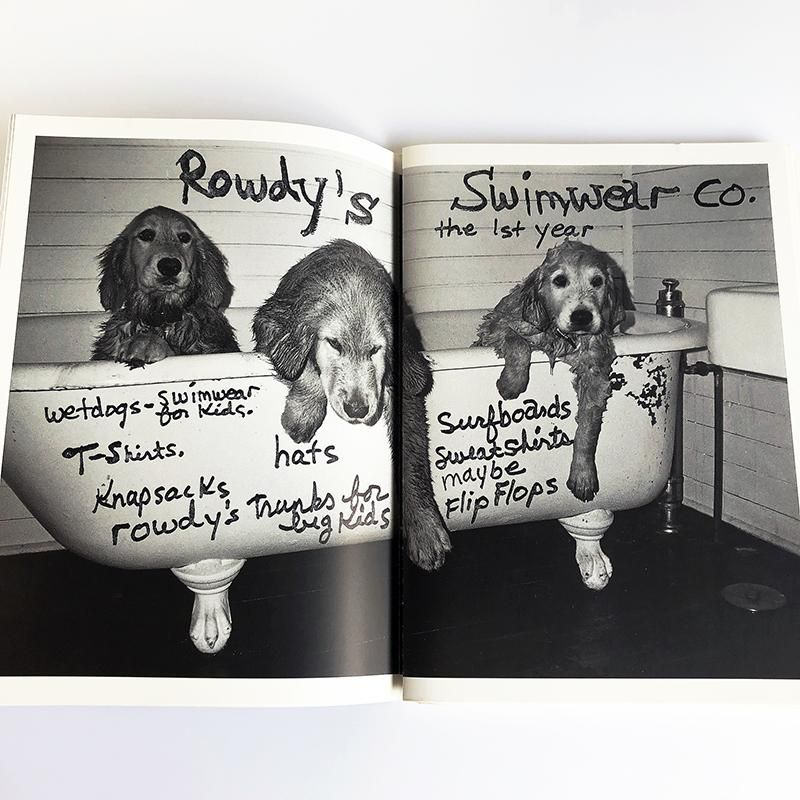 Rowdy's Swimwear Co.
the 1st year
wetdogs - swimwear
for Kids.
T-Shirts.
hats
Knapsacks
rowdy's Trunks for
big Kids
Surfboards
Sweatshirts
maybe
Flip Flops